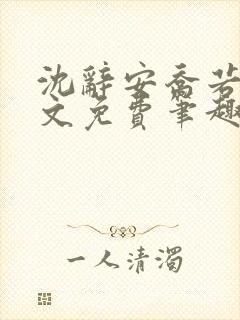 沈辞安乔若
文免费笔趣
一人清濁